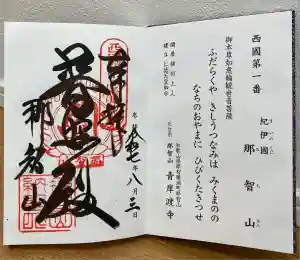 西國第一番
紀伊國
那智山
御本尊如意輪観世音菩薩
ふだらくや きしうつなみは みくまのの
なちのおやまに ひびくたきつせ
和歌山県東牟婁郡那智山
那智山 青岸渡寺
開基 裸形上人
奉拝
普照殿
那智山
令和七年八月三日